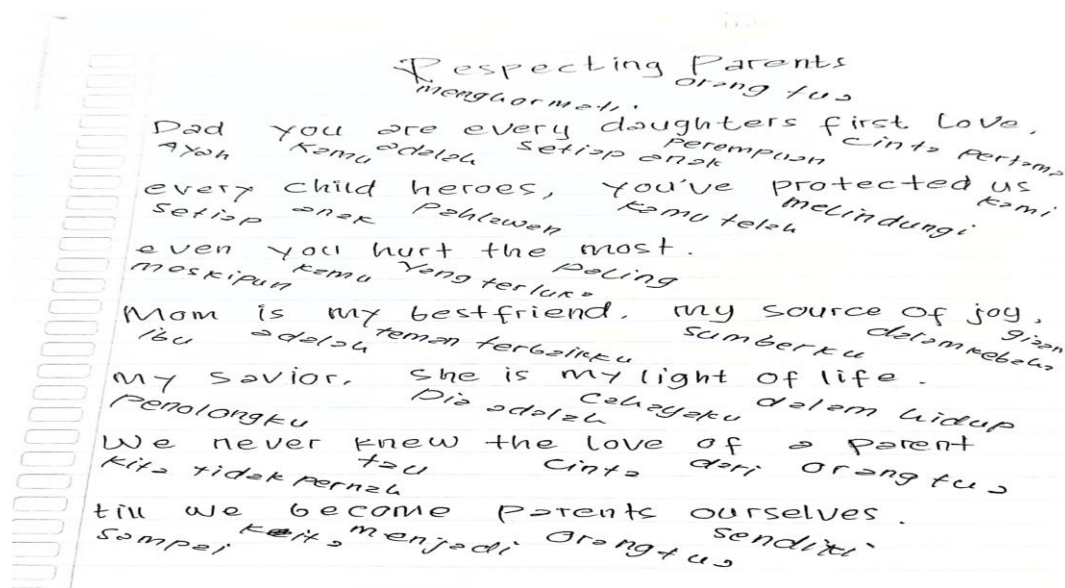 Respecting Parents
menghormati orang tua
Dad you are every daughters first Love,
Ayah kamu adalah setiap anak perempuan cinta pertama
every child heroes, you've protected us
setiap anak Pahlawan kamu telah melindungi kami
even you hurt the most.
meskipun kamu yang terluka paling
Mom is my bestfriend. my source of joy,
Ibu adalah teman terbaikku sumberku dalam kebahagiaan
my savior. she is my light of life.
penolongku Dia adalah cahayaku dalam hidup
We never knew the love of a parent
kita tidak pernah tau cinta dari orang tua
till we become parents ourselves.
sampai kita menjadi orang tua sendiri